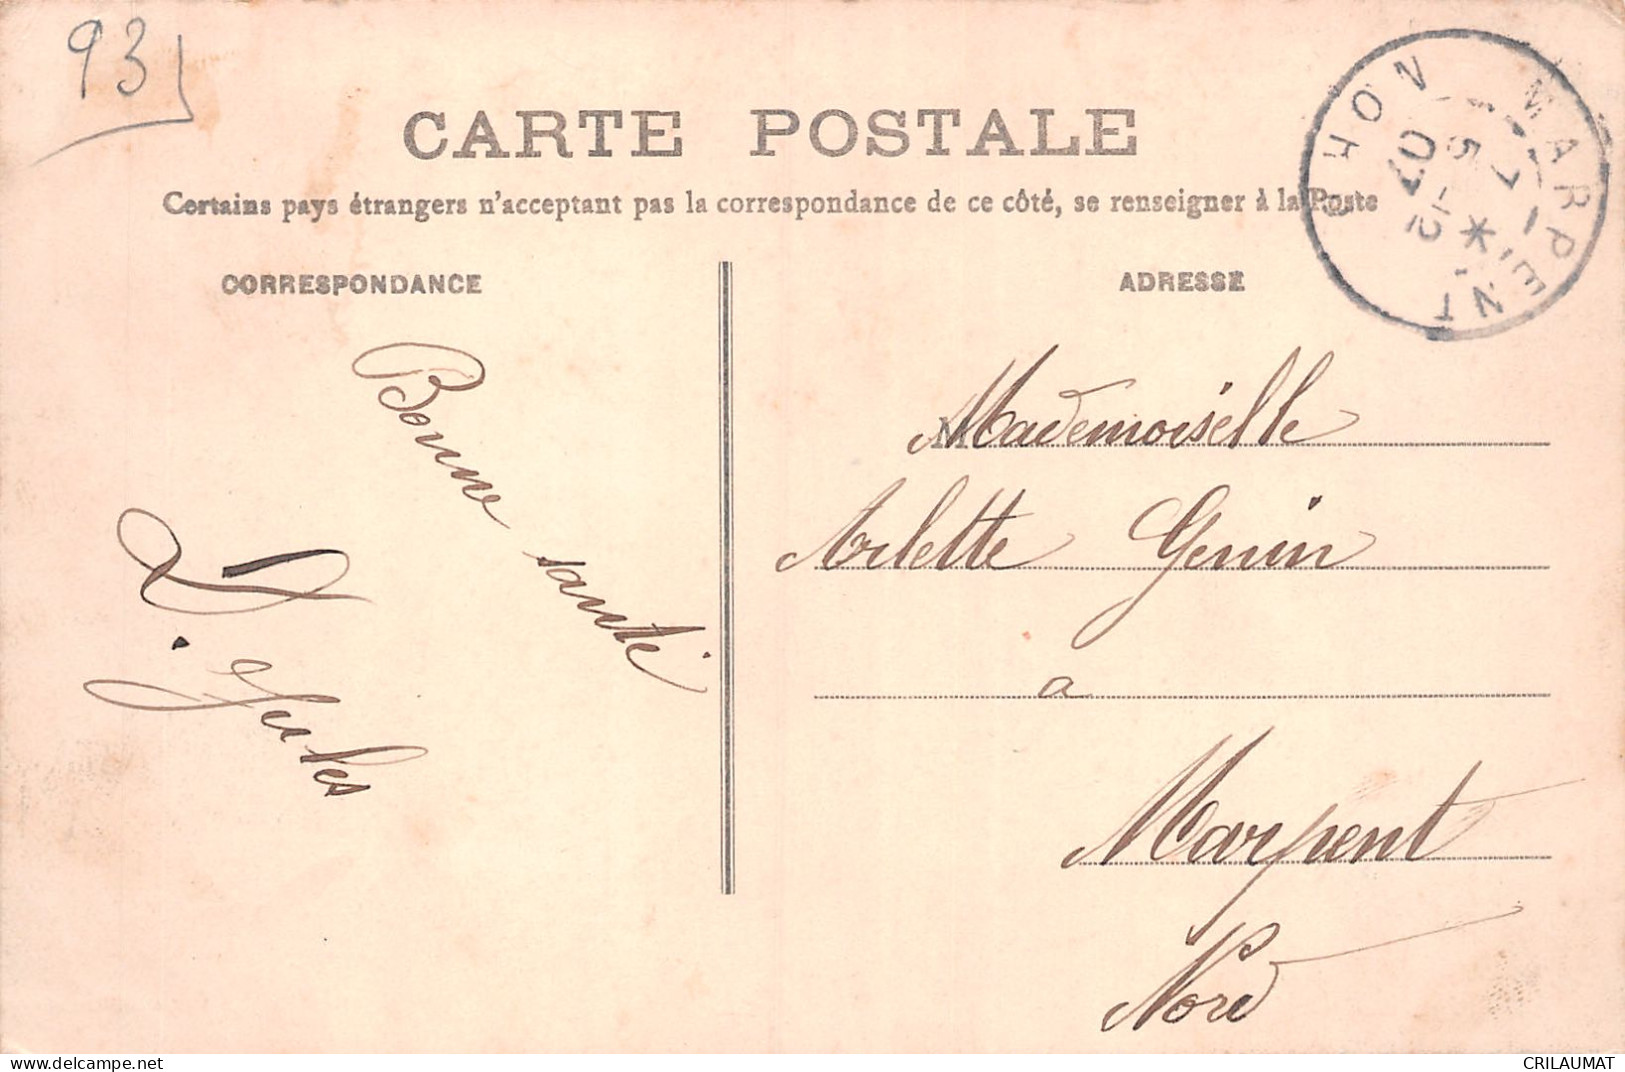 93
CARTE POSTALE
Certains pays étrangers n'acceptant pas la correspondance de ce côté, se renseigner à la Poste
CORRESPONDANCE
ADRESSE
MARPENT
5 -12
07
Bonne santé
Jules
M
Mademoiselle
Arlette Genin
a
Marpent
Nord
CRILAUMAT